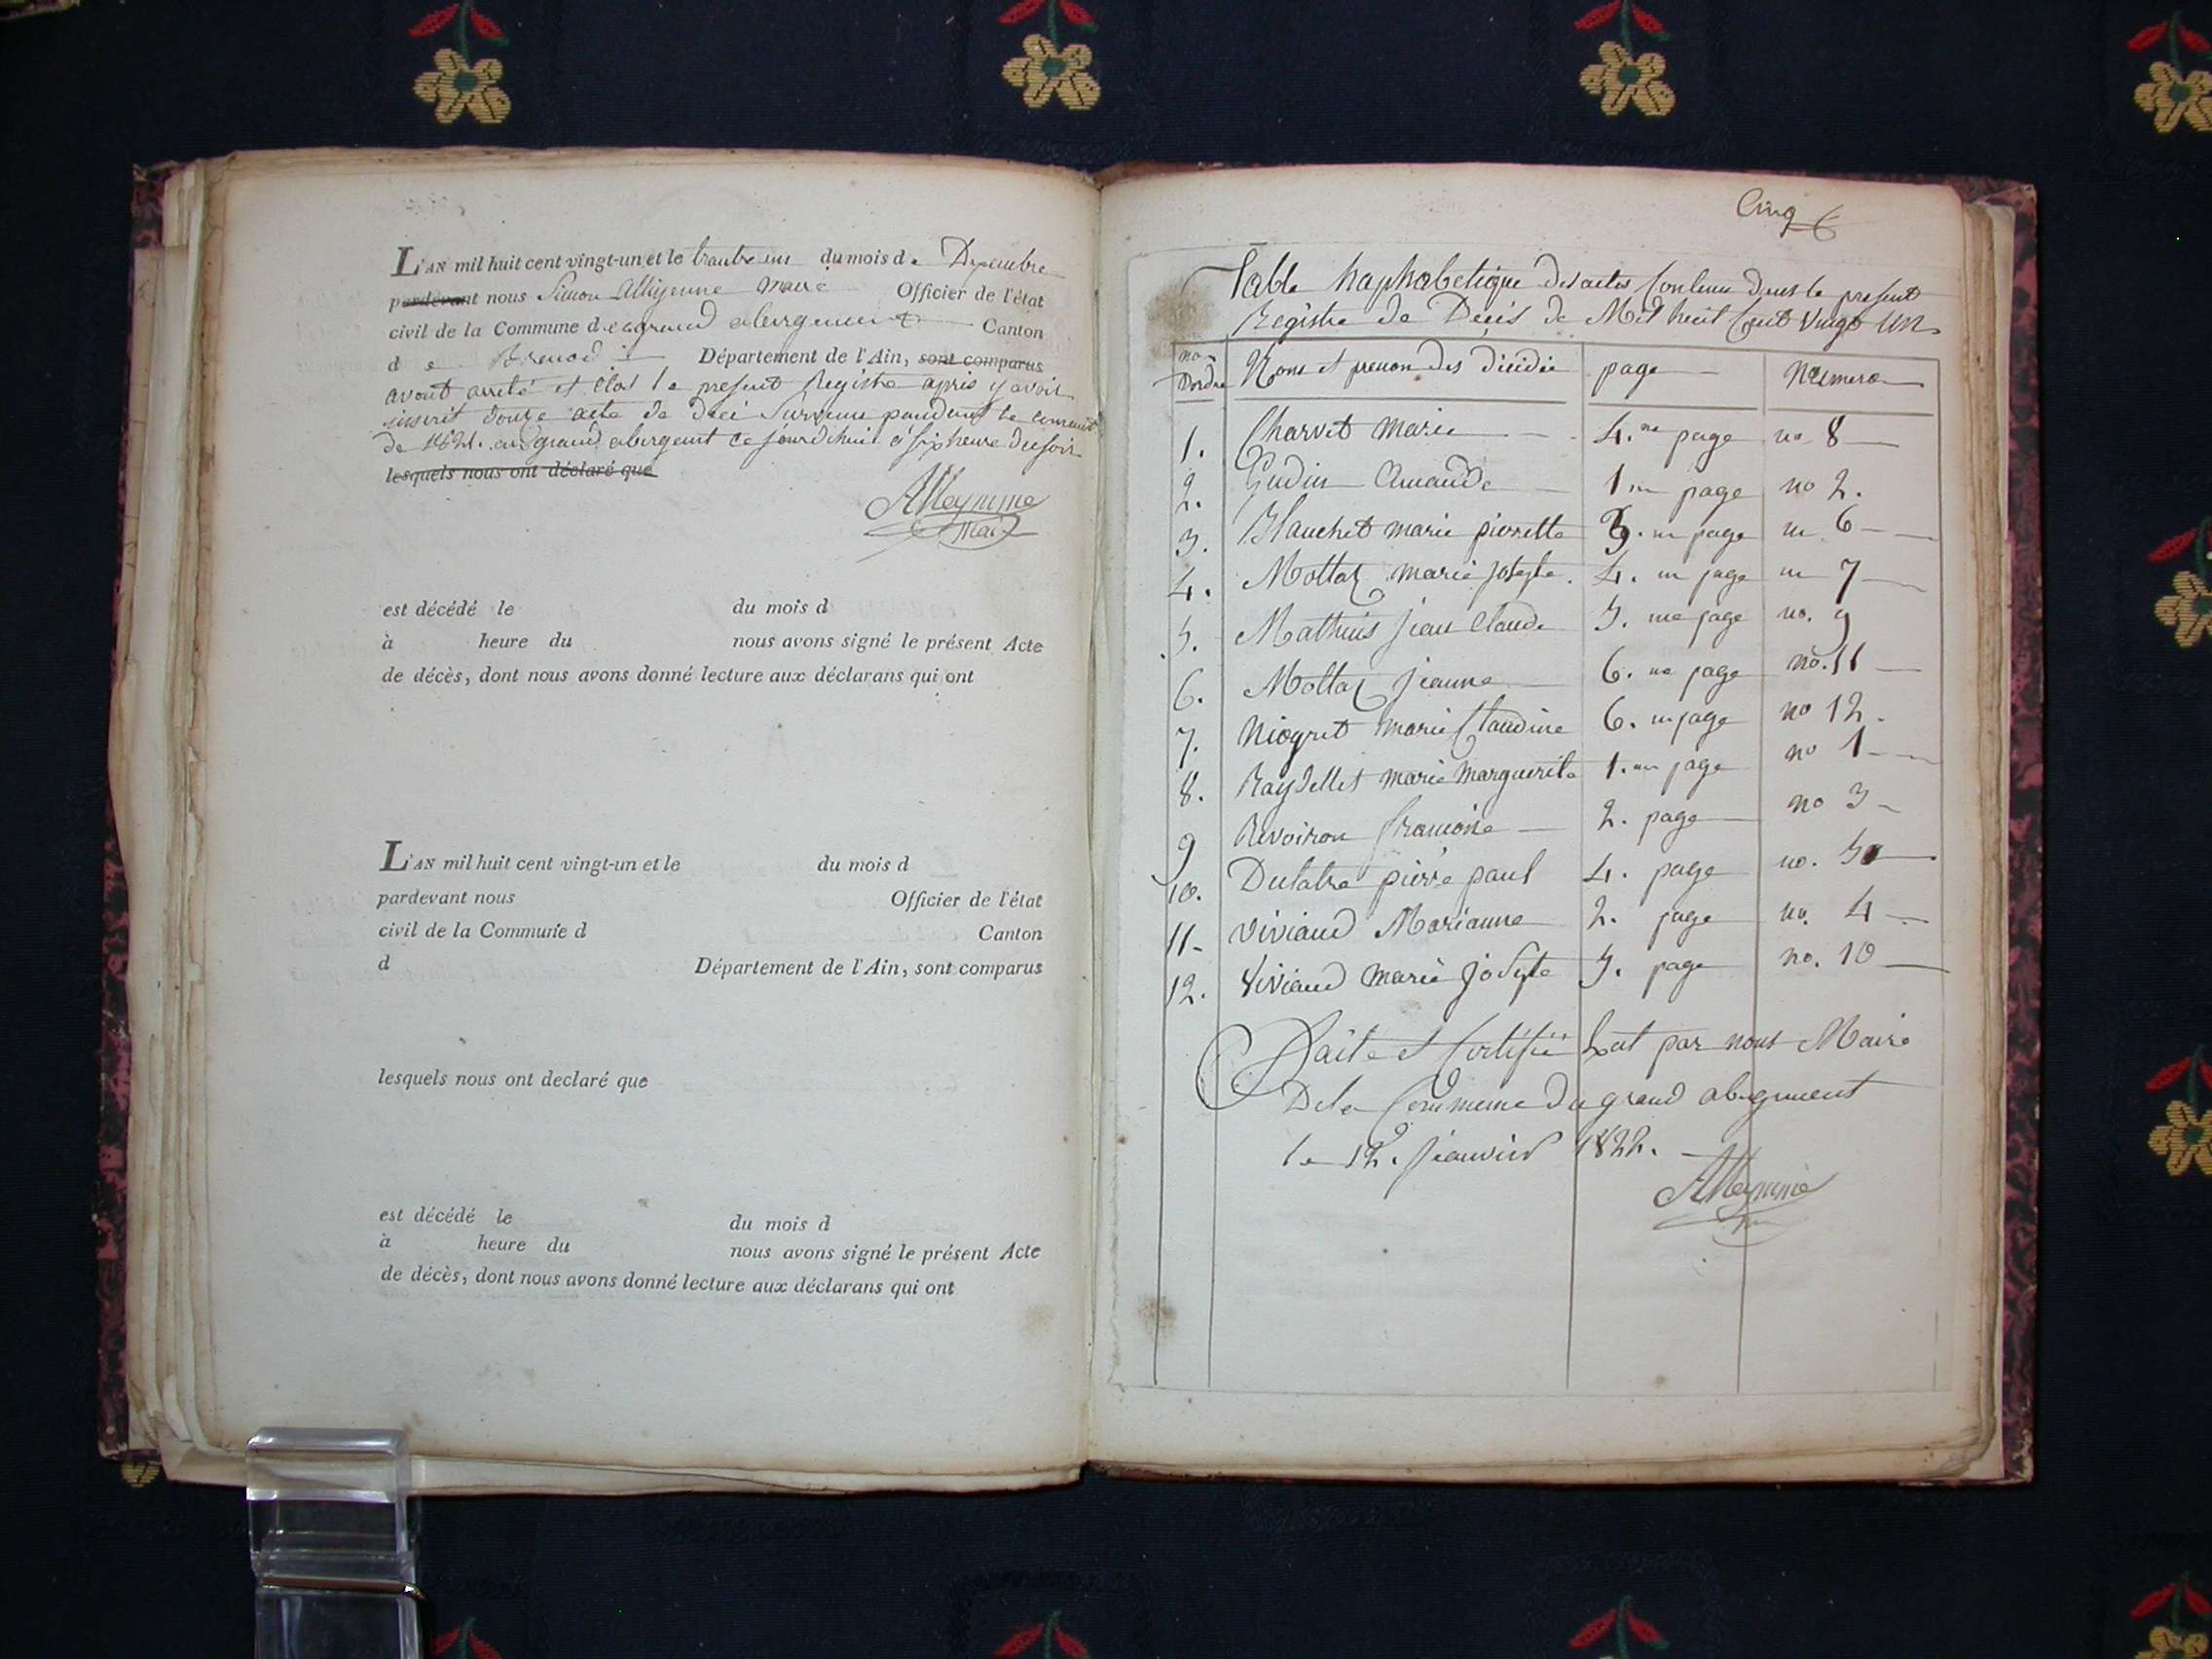 L'AN mil huit cent vingt-un et le trante un du mois de Desembre
pardevant nous Simon Alleymme maire Officier de l'état
civil de la Commune de grand abergement Canton
de Brenod Département de l'Ain, sont comparus
avont arrêté et clos le present Registre apris y avoir
inserit douze acte de deci survenu pandant le courant
de 1821. au grand abergent ce jourdhui à six heure du soir
lesquels nous ont déclaré que
Alleymme
Mair
est décédé le du mois d
à heure du nous avons signé le présent Acte
de décès, dont nous avons donné lecture aux déclarans qui ont
L'AN mil huit cent vingt-un et le du mois d
pardevant nous Officier de l'état
civil de la Commune d Canton
d Département de l'Ain, sont comparus
lesquels nous ont declaré que
est décédé le du mois d
à heure du nous avons signé le présent Acte
de décès, dont nous avons donné lecture aux déclarans qui ont
Cinq
Table haphabetique des actes Contenu dans le present
Registre de Décis de Mil huit Cent Vingt un
no Dordre Nons et prenon des décidée page Numero
1. Charvet marie 4.me page no 8
2. Gudin Claude 1 m page no 2.
3. Blanchet marie pierrette 3. m page no 6
4. Mottaz marie josephe. 4. m page no 7
5. Mathieus jean Claude 5. me page no. 9
6. Mottaz jeanne 6. me page no. 11
7. Niogret marie Claudine 6. m page no 12.
8. Raydellet marie marguerite 1. m page no 1
9 Revoiron francoise 2. page no 3
10. Dulatre pierre paul 4. page no. 5
11 Viviand Marianne 2. page no. 4
12. Viviand marie josepte 5. page no. 10
Faite et Certifié par nous Maire
De la Commune du grand abergement
le 12. jeanvier 1822.
Alleymme